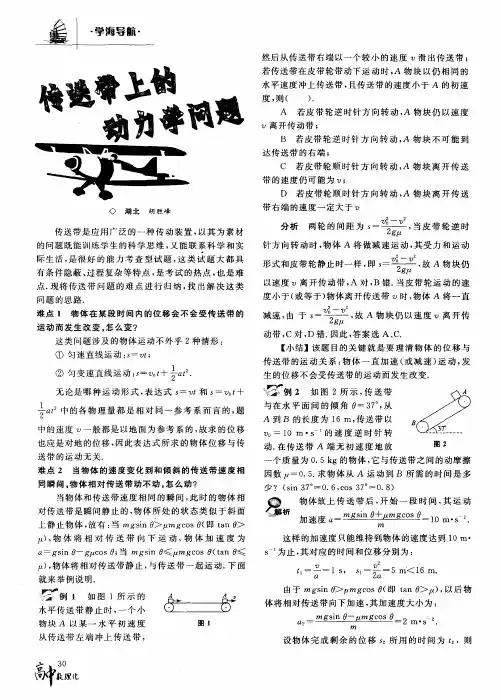 ·学海导航·
传送带上的
动力学问题
◇ 湖北 胡胜峰
传送带是应用广泛的一种传动装置,以其为素材
的问题既能训练学生的科学思维,又能联系科学和实
际生活,是很好的能力考查型试题,这类试题大都具
有条件隐蔽、过程复杂等特点,是考试的热点,也是难
点.现将传送带问题的难点进行归纳,找出解决这类
问题的思路.
难点 1 物体在某段时间内的位移会不会受传送带的
运动而发生改变,怎么变?
这类问题涉及的物体运动不外乎 2 种情形:
① 匀速直线运动:s=vt;
② 匀变速直线运动:s=v₀t+½at².
无论是哪种运动形式,表达式 s=vt 和 s=v₀t+
½at² 中的各物理量都是相对同一参考系而言的,题
中的速度 v 一般都是以地面为参考系的,故求的位移
也应是对地的位移,因此表达式所求的物体位移与传
送带的运动无关.
难点 2 当物体的速度变化到和倾斜的传送带速度相
同瞬间,物体相对传送带动不动,怎么动?
当物体和传送带速度相同的瞬间,此时的物体相
对传送带是瞬间静止的,物体所处的状态类似于斜面
上静止物体,故有:当 mgsin θ>μmgcos θ(即 tan θ>
μ),物体将相对传送带向下运动,物体加速度为
a=gsin θ-gμcos θ;当 mgsin θ≤μmgcos θ(tan θ≤
μ),物体将相对传送带静止,与传送带一起运动.下面
就来举例说明.
例 1 如图 1 所示的
水平传送带静止时,一个小
物块 A 以某一水平初速度
从传送带左端冲上传送带,
A
图 1
然后从传送带右端以一个较小的速度 v 滑出传送带;
若传送带在皮带轮带动下运动时,A 物块以仍相同的
水平速度冲上传送带,且传送带的速度小于 A 的初速
度,则( ).
A 若皮带轮逆时针方向转动,A 物块仍以速度
v 离开传动带;
B 若皮带轮逆时针方向转动,A 物块不可能到
达传送带的右端;
C 若皮带轮顺时针方向转动,A 物块离开传送
带的速度仍可能为 v;
D 若皮带轮顺时针方向转动,A 物块离开传送
带右端的速度一定大于 v
分析 两轮的间距为 s=(v₀²-v²)/(2gμ),当皮带轮逆时
针方向转动时,物体 A 将做减速运动,其受力和运动
形式和皮带轮静止时一样,即 s=(v₀²-v²)/(2gμ),故 A 物块仍
以速度 v 离开传动带,A 对,B 错.当皮带轮运动的速
度小于(或等于)物体离开传送带 v 时,物体 A 将一直
减速,由于 s=(v₀²-v²)/(2gμ),故 A 物块仍以速度 v 离开传
动带,C 对,D 错.因此,答案选 A、C.
【小结】该题目的关键就是要理清物体的位移与
传送带的运动关系:物体一直加速(或减速)运动,发
生的位移不会受传送带的运动而发生改变.
例 2 如图 2 所示,传送带
与在水平面间的倾角 θ=37°,从
A 到 B 的长度为 16 m,传送带以
v₀=10 m·s⁻¹ 的速度逆时针转
动.在传送带 A 端无初速度地放
A
B
37°
图 2
一个质量为 0.5 kg 的物体,它与传送带之间的动摩擦
因数 μ=0.5.求物体从 A 运动到 B 所需的时间是多
少?(sin 37°=0.6,cos 37°=0.8)
解析 物体放上传送带后,开始一段时间,其运动
加速度 a=(mgsin θ+μmgcos θ)/m=10 m·s⁻².
这样的加速度只能维持到物体的速度达到 10 m·
s⁻¹ 为止,其对应的时间和位移分别为:
t₁=v/a=1 s, s₁=v²/2a=5 m<16 m.
由于 mgsin θ>μmgcos θ(即 tan θ>μ),以后物
体将相对传送带向下加速,其加速度大小为:
a₂=(mgsin θ-μmgcos θ)/m=2 m·s⁻².
设物体完成剩余的位移 s₂ 所用的时间为 t₂,则
30
高中数理化